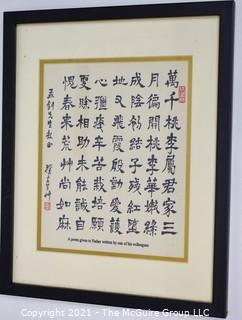 萬千桃李屬君家三
月徧開桃李華嫩綠
成陰幼結子殘紅墮
地又飛霞殷勤愛護
心雖瘁辛苦栽培願
更賒相助未能誠自
愧春來荒艸尚如麻
先生教正
A poem given to Father written by one of his colleagues
Copyright 2021 - The McGuire Group LLC